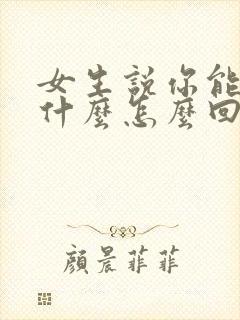 女生說你能
什麼怎麼回
顏晨菲菲